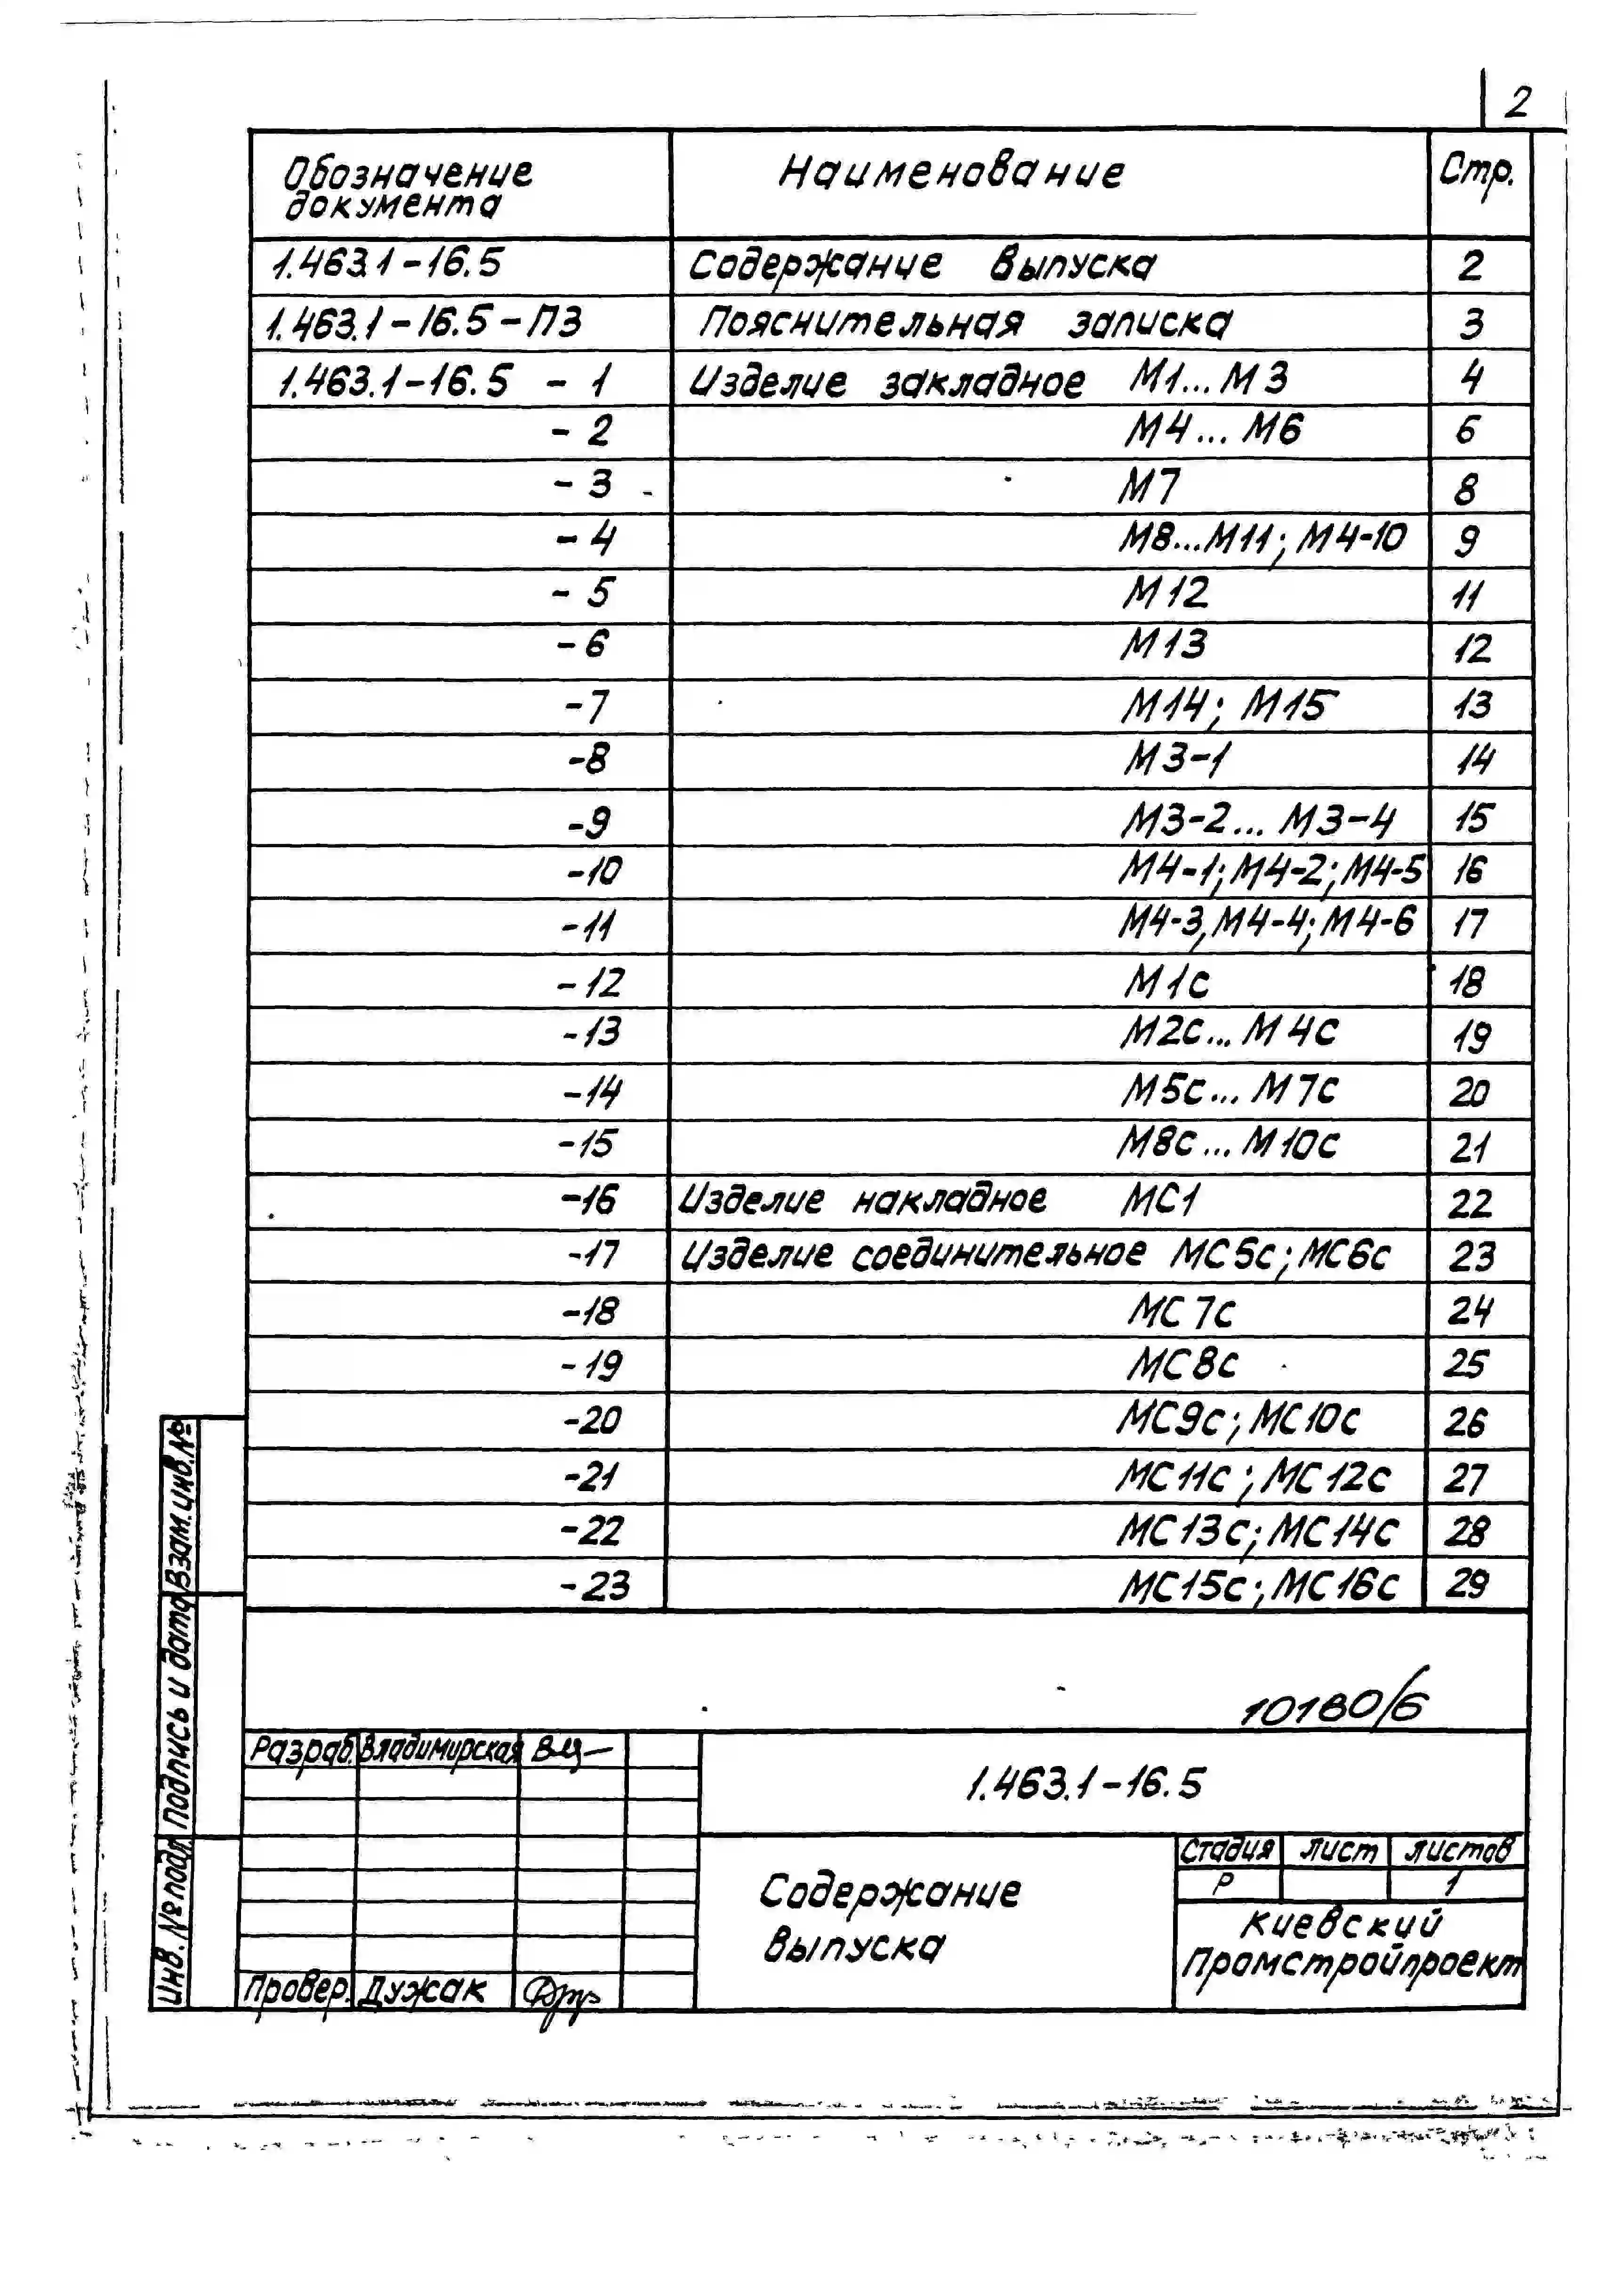 2
Обозначение документа Наименование Стр.
1.463.1-16.5 Содержание выпуска 2
1.463.1-16.5-ПЗ Пояснительная записка 3
1.463.1-16.5 - 1 Изделие закладное М1...М3 4
- 2 М4...М6 6
- 3 М7 8
- 4 М8...М11; М4-10 9
- 5 М12 11
- 6 М13 12
-7 М14; М15 13
-8 М3-1 14
-9 М3-2...М3-4 15
-10 М4-1; М4-2; М4-5 16
-11 М4-3, М4-4; М4-6 17
-12 М1с 18
-13 М2с...М4с 19
-14 М5с...М7с 20
-15 М8с...М10с 21
-16 Изделие накладное МС1 22
-17 Изделие соединительное МС5с; МС6с 23
-18 МС7с 24
-19 МС8с 25
-20 МС9с; МС10с 26
-21 МС11с; МС12с 27
-22 МС13с; МС14с 28
-23 МС15с; МС16с 29
10180/6
Разраб. Владимирская
1.463.1-16.5
Содержание
выпуска
Стадия Лист Листов
Р 1
Киевский
Промстройпроект
Провер. Дужак
Инв. № подл. Подпись и дата Взам. инв. №